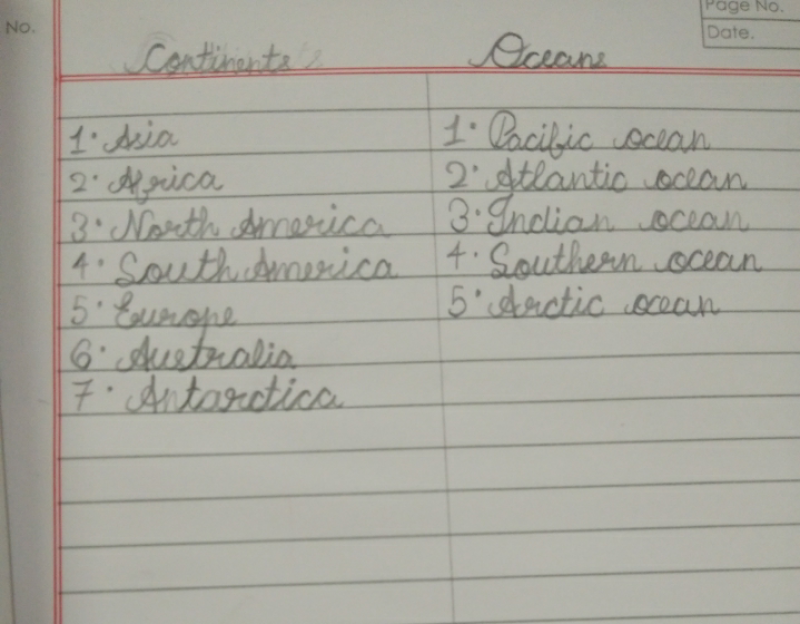 No.
Page No.
Date.
Continents Oceans
1. Asia 1. Pacific ocean
2. Africa 2. Atlantic ocean
3. North America 3. Indian ocean
4. South America 4. Southern ocean
5. Europe 5. Arctic ocean
6. Australia
7. Antarctica